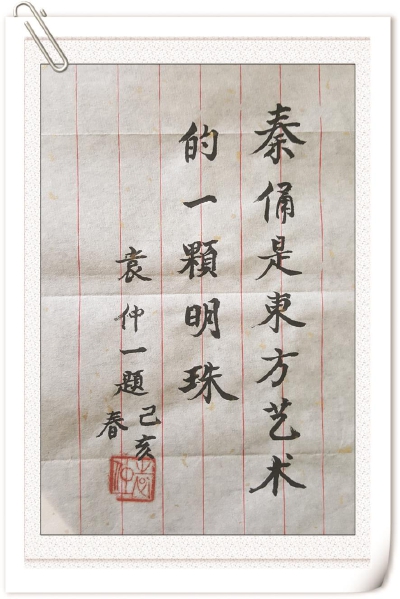 秦俑是東方艺术
的一顆明珠
袁仲一题
己亥
春